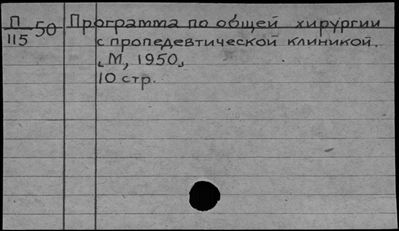 П/115-50 Программа по общей хирургии
с пропедевтической клиникой.
[М, 1950]
10 стр.